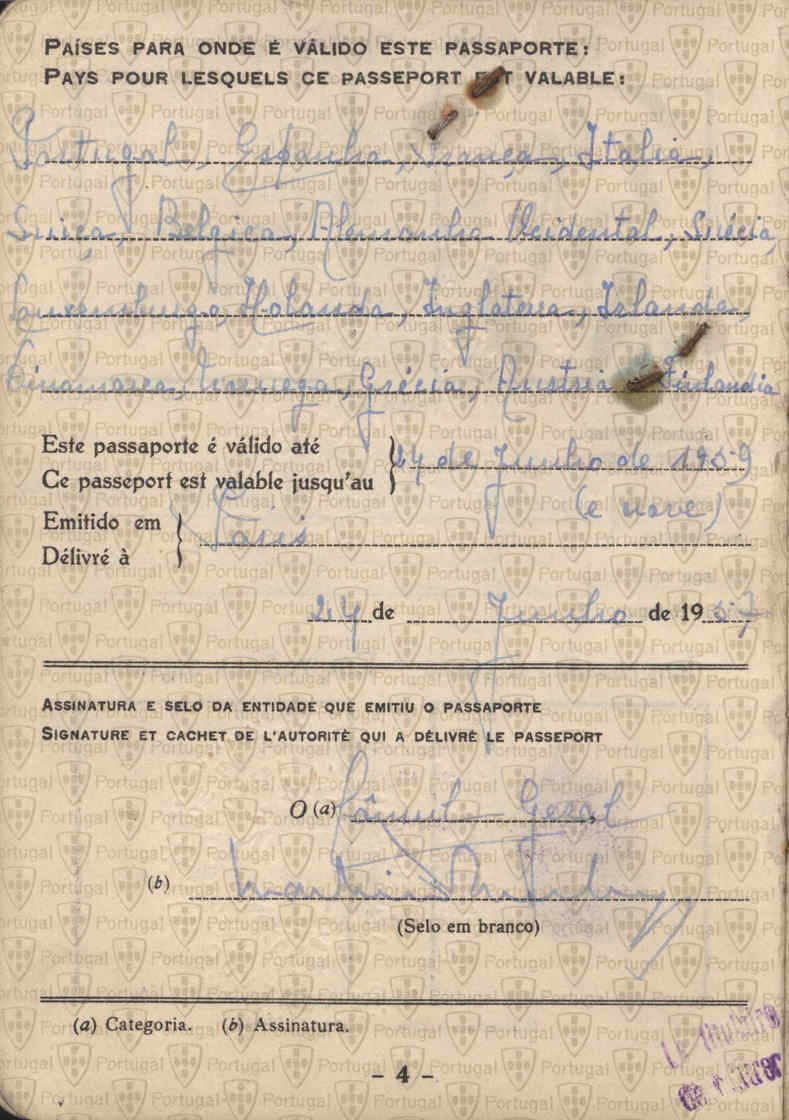 PAÍSES PARA ONDE É VÁLIDO ESTE PASSAPORTE:
PAYS POUR LESQUELS CE PASSEPORT EST VALABLE:
Portugal, Espanha, França, Italia,
Suiça, Belgica, Alemanha Ocidental, Suécia,
Luxemburgo, Holanda, Inglaterra, Irlanda,
Dinamarca, Noruega, Grécia, Austria Finlandia
Este passaporte é válido até
Ce passeport est valable jusqu'au
24 de Junho de 1959
(e nove)
Emitido em
Délivré à
Paris
24 de Junho de 1957
ASSINATURA E SELO DA ENTIDADE QUE EMITIU O PASSAPORTE
SIGNATURE ET CACHET DE L'AUTORITÈ QUI A DÉLIVRÉ LE PASSEPORT
O (a) Cônsul-Geral,
(b)
(Selo em branco)
(a) Categoria. (b) Assinatura.
- 4 -